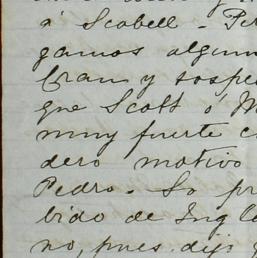 a' Scobell - Per
gamos algun
Cran y sospe
que Scott o' M
muy fuerte c
dero motivo
Pedro. So pr
bido de Ing la
no, pues dijo